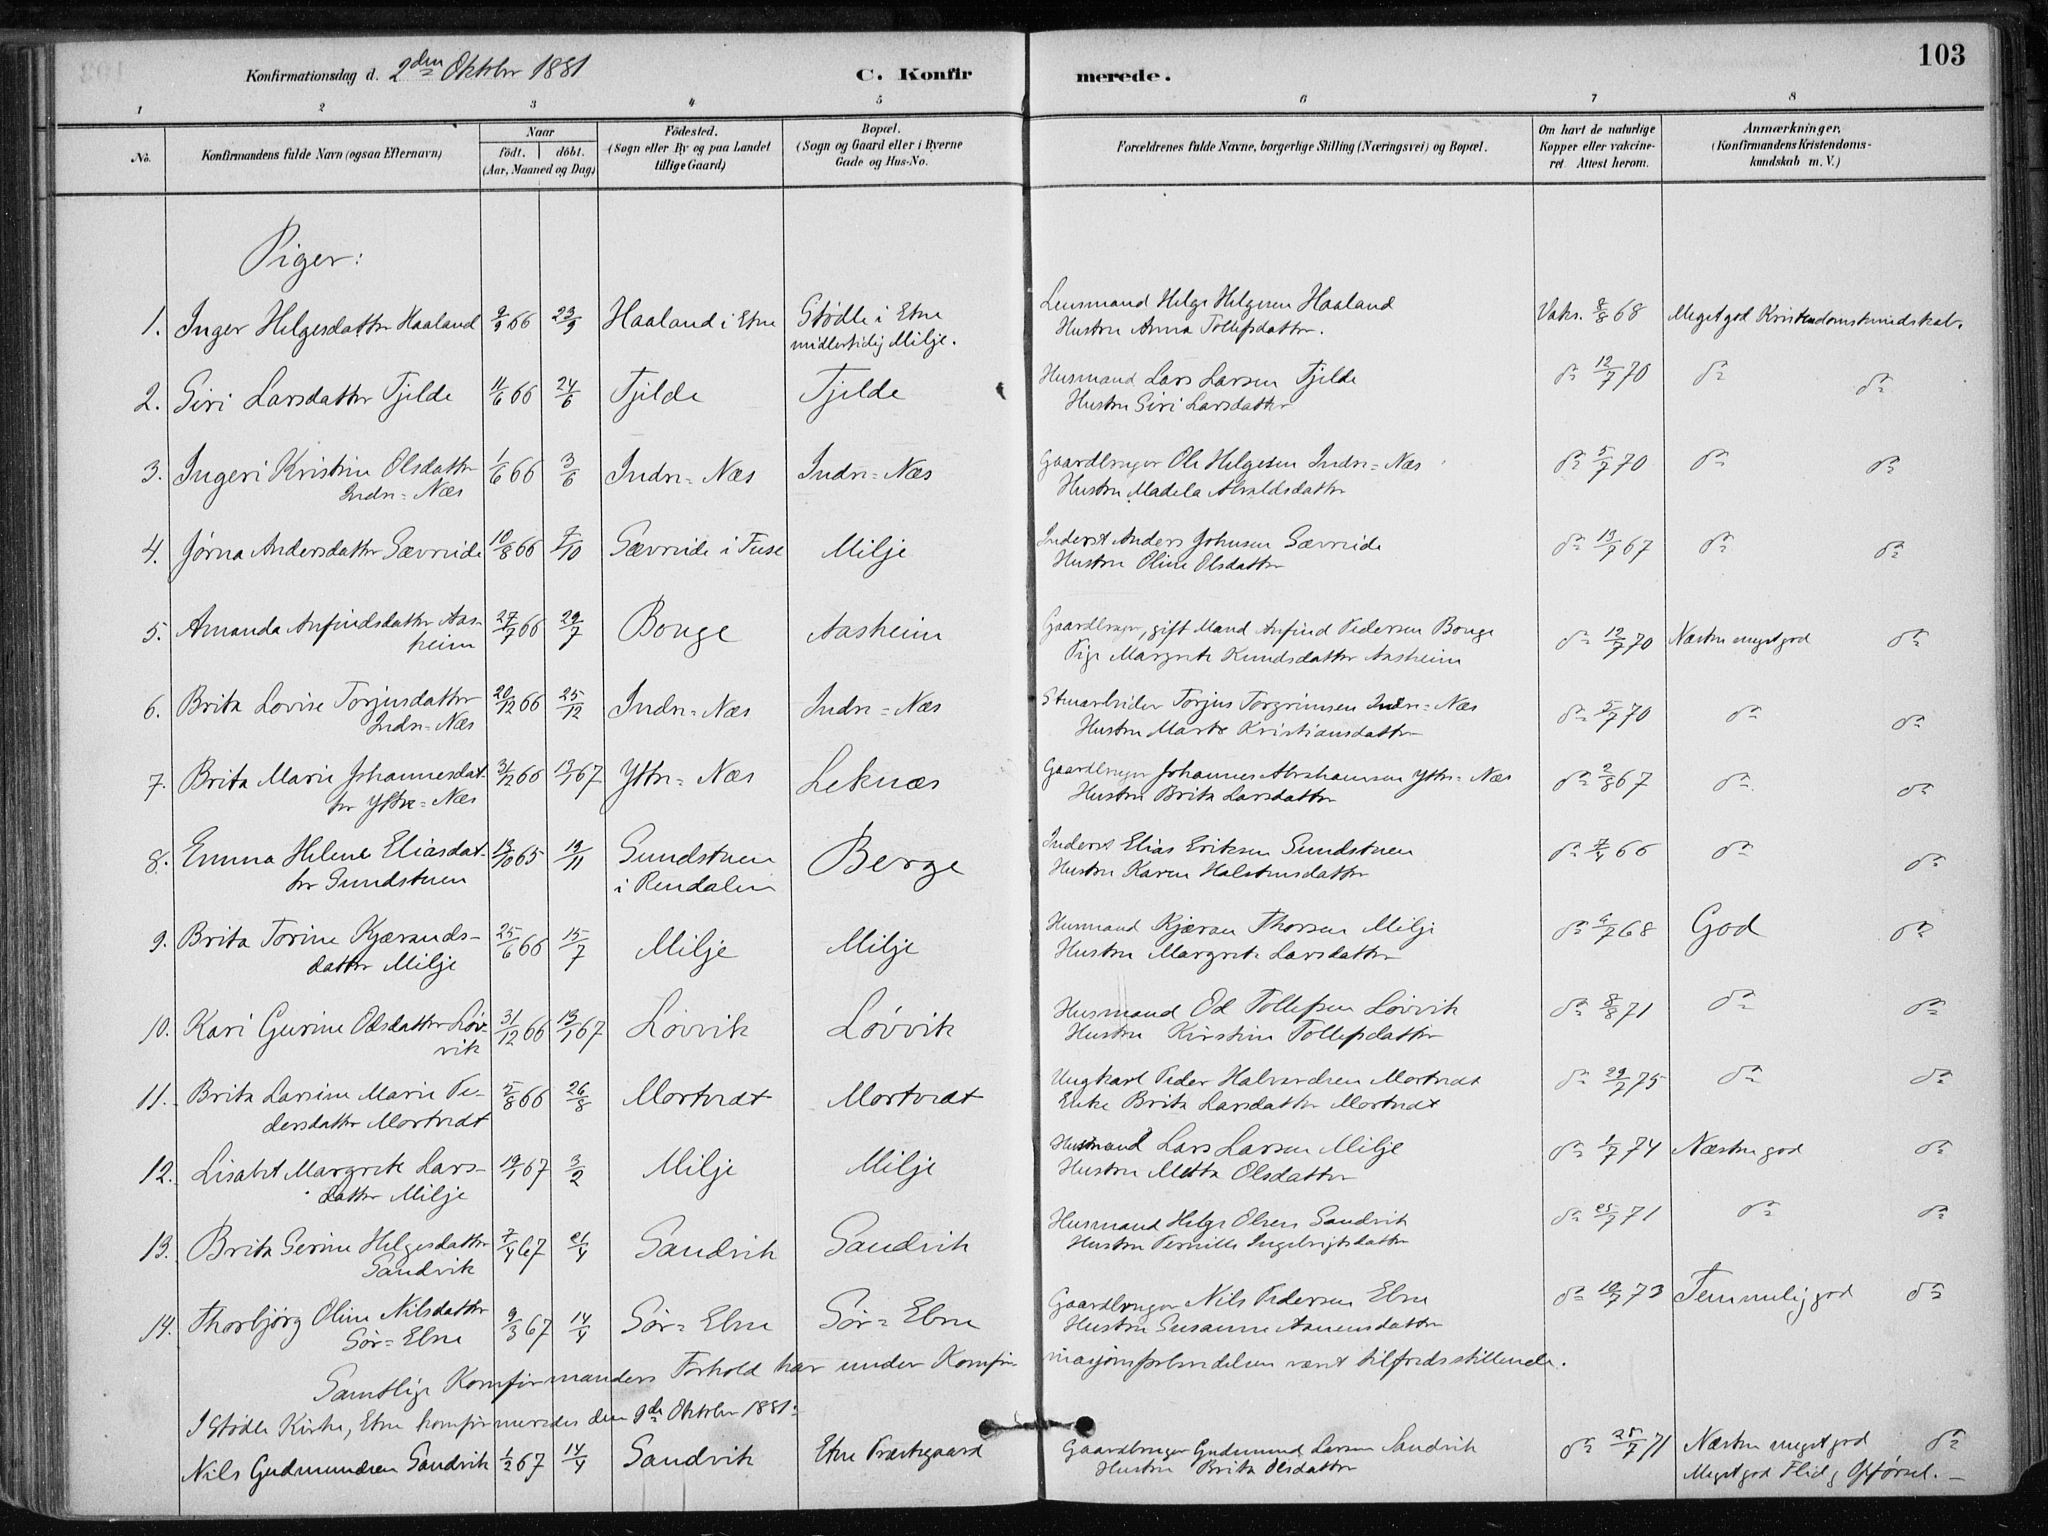 103
Konfirmationsdag d. 2den Oktober 1881 C. Konfirmerede.
1 2 3 4 5 6 7 8
No. Konfirmandens fulde Navn (ogsaa Efternavn) Naar født. døbt. (Aar, Maaned og Dag) Fødested. (Sogn eller By og paa Landet tillige Gaard) Bopæl. (Sogn og Gaard eller i Byerne Gade og Hus-No. Forældrenes fulde Navne, borgerlige Stilling (Næringsvei) og Bopæl. Om havt de naturlige Kopper eller vakcineret. Attest herom. Anmærkninger, (Konfirmandens Kristendomskundskab m. V.)
Piger:
1. Inger Helgesdatter Haaland 9/9 66 23/9 Haaland i Etne Stødle i Etne midlertidig Milje. Lensmand Helge Helgesen Haaland Vaks. 8/8 68 Meget god Kristendomskundskab.
Hustru Anna Tollefsdatter.
2. Siri Larsdatter Tjelde 11/6 66 24/6 Tjelde Tjelde Husmand Lars Larsen Tjelde do 12/7 70 do do
Hustru Siri Larsdatter
3. Ingeri Kristine Olsdatter 1/6 66 3/6 Indre=Næs Indre=Næs Gaardbruger Ole Helgesen Indre=Næs do 5/7 70 do do
Indre=Næs Hustru Madela Abraldsdatter
4. Jørna Andersdatter Sævreide 10/8 66 7/10 Sævreide i Fuse Milje Inderst Anders Johnsen Sævreide do 13/7 67 do do
Hustru Oline Olsdatter
5. Amanda Anfindsdatter Aas- 27/7 66 29/7 Bouge Aasheim Gaardbruger, gift Mand Anfind Pedersen Bouge do 12/7 70 Næsten meget god do
heim Pige Margrete Knudsdatter Aasheim
6. Brita Lovise Torjusdatter 20/12 66 25/12 Indre=Næs Indre=Næs Stuearbeider Torjus Torgrimsen Indre=Næs do 5/7 70 do do
Indre=Næs Hustru Marte Kristiansdatter
7. Brita Marie Johannesdat- 31/12 66 13/1 67 Ytre=Næs Leknæs Gaardbruger Johannes Abrahamsen Ytre=Næs do 2/8 67 do do
ter Ytre=Næs Hustru Brita Larsdatter
8. Emma Helene Eliasdat- 13/10 65 19/11 Sundstuen Berge Inderst Elias Eriksen Sundstuen do 7/4 66 do do
ter Sundstuen i Rendalen Hustru Karen Halstensdatter
9. Brita Torine Kjærands- 25/6 66 15/7 Milje Milje Husmand Kjæran Thorsen Milje do 4/7 68 God do
datter Milje Hustru Margrete Larsdatter
10. Kari Gurine Odsdatter Løv- 31/12 66 13/1 67 Løvvik Løvvik Husmand Od Tollefsen Løvvik do 8/8 71 do do
vik Hustru Kirstine Tollefsdatter
11. Brita Larsine Marie Pe- 5/8 66 26/8 Mortvedt Mortvedt Ungkarl Peder Halvordsen Mortvedt do 29/7 75 do do
dersdatter Mortvedt Enke Brita Larsdatter Mortvedt
12. Lisabet Margrete Lars- 19/1 67 3/2 Milje Milje Husmand Lars Larsen Milje do 1/7 74 Næsten god do
datter Milje Hustru Metta Olsdatter
13. Brita Serine Helgesdatter 7/4 67 21/4 Sandvik Sandvik Husmand Helge Olsen Sandvik do 25/7 71 do do
Sandvik Hustru Pernille Ingebrigtsdatter
14. Thorbjørg Oline Nilsdatter 9/3 67 14/4 Sør=Ebne Sør=Ebne Gaardbruger Nils Pedersen Ebne do 10/7 73 Temmelig god do
Sør=Ebne Hustru Susanne Asmensdatter
Samtlige Konfirmanders Forhold har under Konfirmasjonsforberedelsen været tilfredsstillende.
I Stødle Kirke, Etne konfirmeredes den 9de Oktober 1881:
Nils Gudmundsen Sandvik 1/2 67 14/4 Sandvik Etne Præstegaard Gaardbruger Gudmund Larsen Sandvik do 25/7 71 Næsten meget god do
Hustru Brita Olsdatter Meget god Flid og Opførsel.